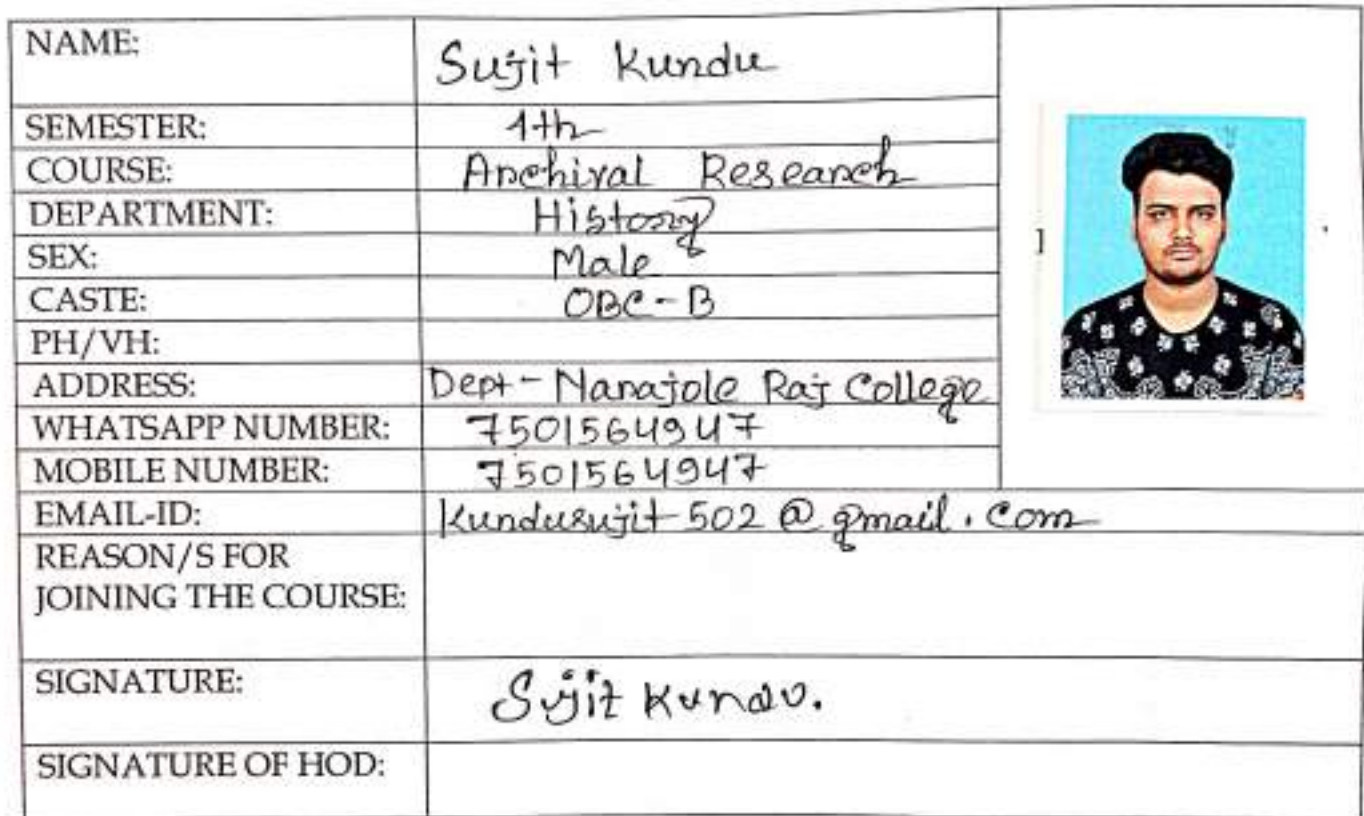 NAME: Sujit Kundu
SEMESTER: 4th
COURSE: Archival Research
DEPARTMENT: History
SEX: Male
CASTE: OBC-B
PH/VH:
ADDRESS: Dept- Narajole Raj College
WHATSAPP NUMBER: 7501564947
MOBILE NUMBER: 7501564947
EMAIL-ID: Kundusujit502@gmail.com
REASON/S FOR
JOINING THE COURSE:
SIGNATURE: Sujit Kundu.
SIGNATURE OF HOD: